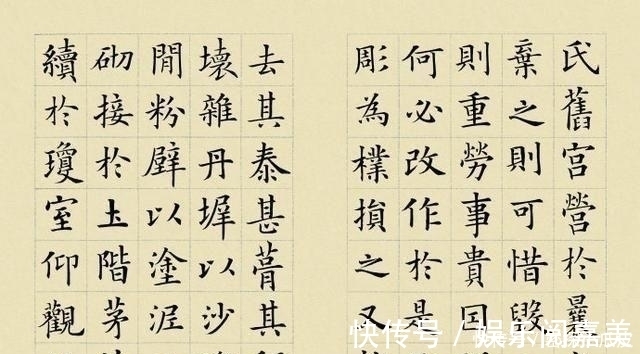 氏舊宮營於曩
棄之則可惜毀
則重勞事貴因
何必改作於是
彫為樸損之又
去其泰甚葺其
壞雜丹墀以沙
閒粉壁以塗泥
砌接於土階茅
續於瓊室仰觀
快传号 / 娱乐阁嘉美